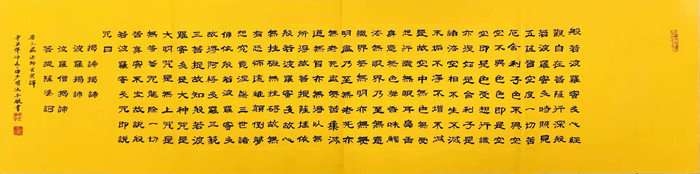 般若波羅蜜多心經
觀自在菩薩行深般
若波羅蜜多時照見
五蘊皆空度一切苦
厄舍利子色不異空
空不異色色即是空
空即是色受想行識
亦復如是舍利子是
諸法空相不生不滅
不垢不淨不增不減
是故空中無色無受
想行識無眼耳鼻舌
身意無色聲香味觸
法無眼界乃至無意
識界無無明亦無無
明盡乃至無老死亦
無老死盡無苦集滅
道無智亦無得以無
所得故菩提薩埵依
般若波羅蜜多故心
無罣礙無罣礙故無
有恐怖遠離顛倒夢
想究竟涅槃三世諸
佛依般若波羅蜜多
故得阿耨多羅三藐
三菩提故知般若波
羅蜜多是大神咒是
大明咒是無上咒是
無等等咒能除一切
苦真實不虛故說般
若波羅蜜多咒即說
咒曰
揭諦揭諦
波羅揭諦
波羅僧揭諦
菩提薩婆訶
唐三藏法師玄奘譯